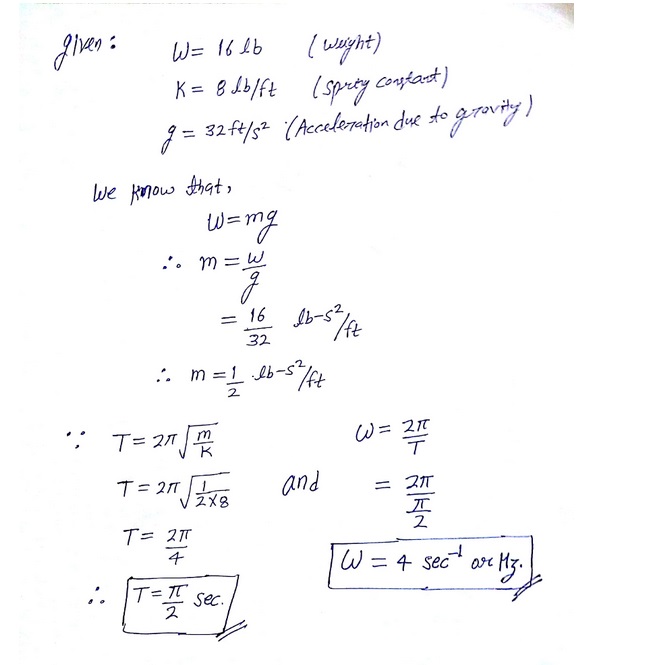 given: W = 16 lb (weight)
K = 8 lb/ft (Sprty constant)
g = 32 ft/s² (Acceleration due to gravity)
We know that,
W = mg
∴ m = W/g
= 16/32 lb-s²/ft
∴ m = 1/2 lb-s²/ft
∵ T = 2π√(m/K)
T = 2π√(1/(2×8))
T = 2π/4
∴ T = π/2 sec.
and
W = 2π/T
= 2π/(π/2)
W = 4 sec⁻¹ or Hz.